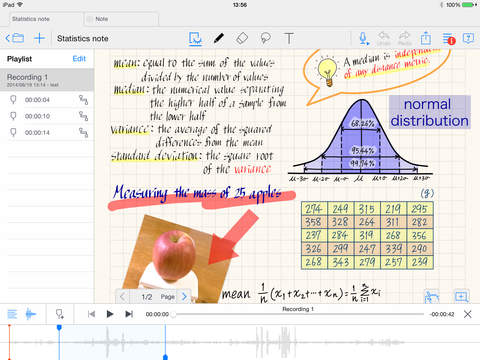 iPad
13:56
100%
Statistics note
Note
Statistics note
Playlist
Edit
Recording 1
00:00:04
00:00:10
00:00:14
mean: equal to the sum of the values
divided by the number of values
median: the numerical value separating
the higher half of a sample from
the lower half
variance: the average of the squared
differences from the mean
standard deviation: the square root
of the variance
A median is independent
of any distance metric.
normal
distribution
68.26%
95.44%
99.74%
μ-3σ μ-2σ μ-σ μ μ+σ μ+2σ μ+3σ
Measuring the mass of 25 apples
(g)
274 249 315 219 295
358 328 264 311 282
237 284 319 268 356
326 299 247 339 290
268 343 279 257 239
1/2 Page
mean 1/n (x₁+x₂+···+xₙ)=1/n Σⁿᵢ₌₁ xᵢ
00:00:00
Recording 1
-00:00:42